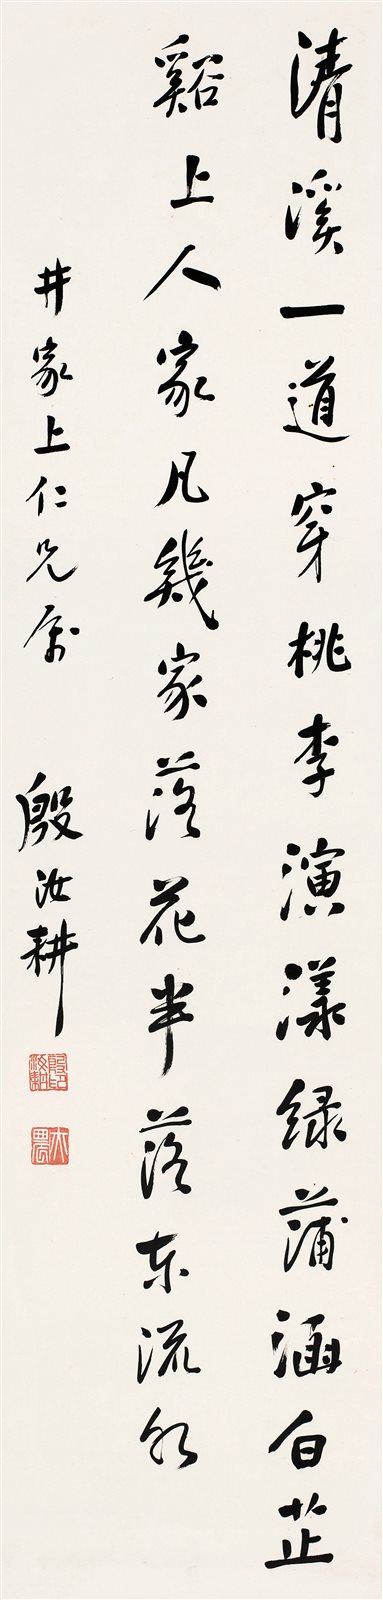 清溪一道穿桃李演漾绿蒲涵白芷
谿上人家凡幾家落花半落东流水
井家上仁兄属
殷汝耕
殷汝耕印
亦農